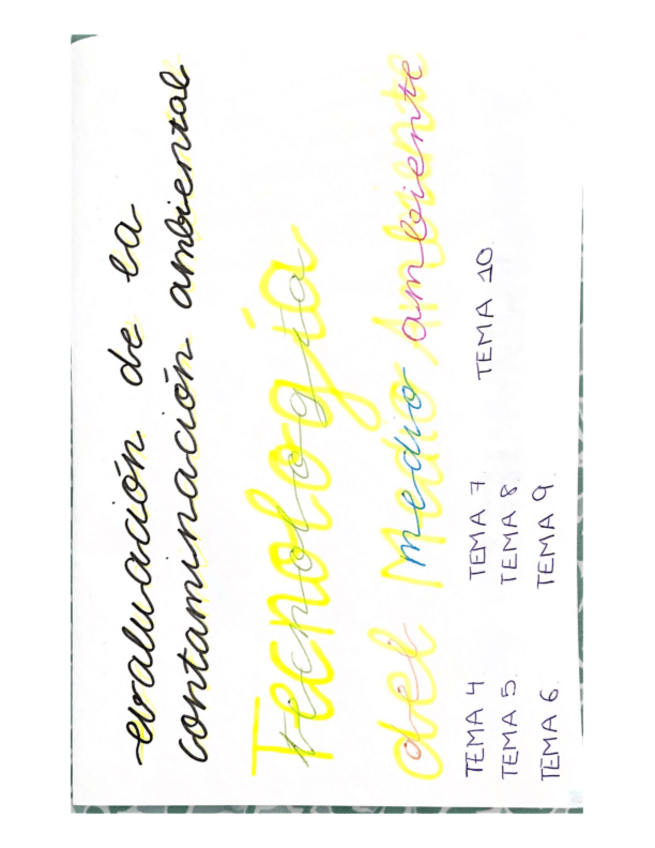 evaluación de la
contaminación ambiental
Tecnología
del Medio Ambiente
TEMA 4
TEMA 5.
TEMA 6.
TEMA 7.
TEMA 8.
TEMA 9.
TEMA 10.